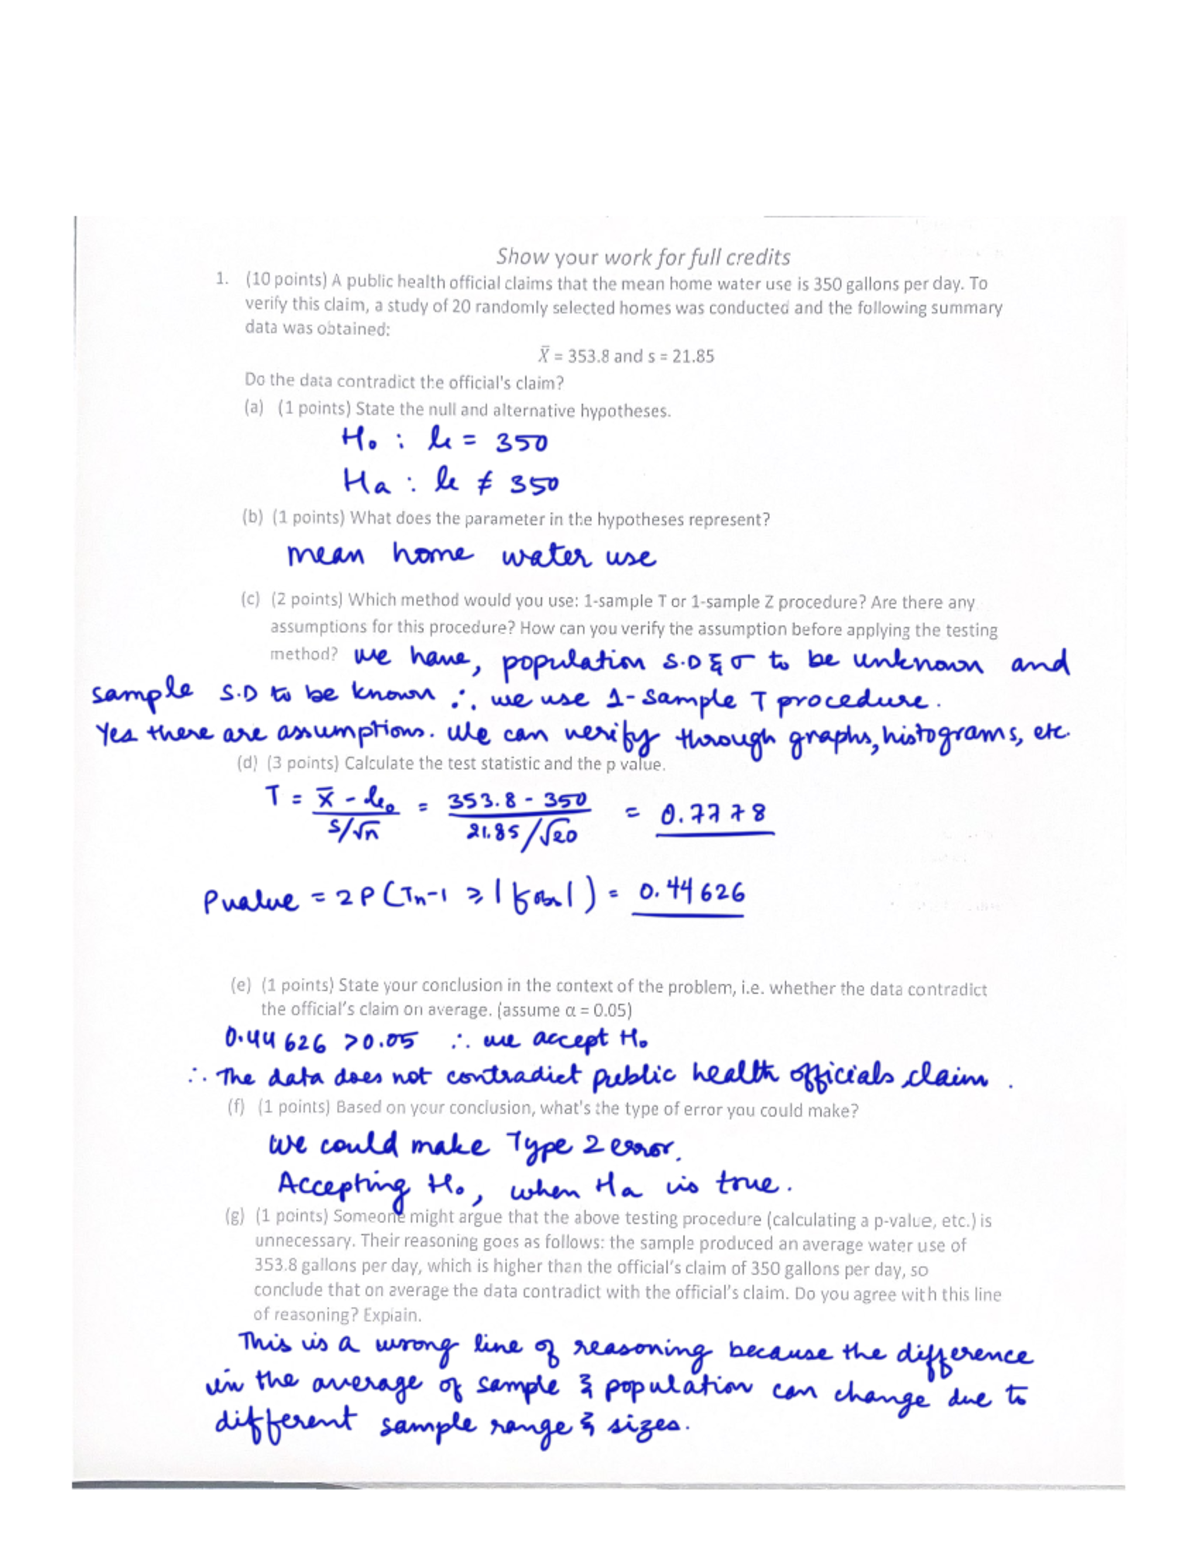 Show your work for full credits
1. (10 points) A public health official claims that the mean home water use is 350 gallons per day. To
verify this claim, a study of 20 randomly selected homes was conducted and the following summary
data was obtained:
X̄ = 353.8 and s = 21.85
Do the data contradict the official's claim?
(a) (1 points) State the null and alternative hypotheses.
H₀ : μ = 350
Ha : μ ≠ 350
(b) (1 points) What does the parameter in the hypotheses represent?
mean home water use
(c) (2 points) Which method would you use: 1-sample T or 1-sample Z procedure? Are there any
assumptions for this procedure? How can you verify the assumption before applying the testing
method? we have, population S.D & σ to be unknown and
sample S.D to be known ∴ we use 1-sample T procedure.
Yes there are assumptions. We can verify through graphs, histograms, etc.
(d) (3 points) Calculate the test statistic and the p value.
T = x̄ - μ₀ / s/√n = 353.8 - 350 / 21.85/√20 = 0.7778
P value = 2P (Tn-1 ≥ |tobs|) = 0.44626
(e) (1 points) State your conclusion in the context of the problem, i.e. whether the data contradict
the official's claim on average. (assume α = 0.05)
0.44626 >0.05 ∴ we accept H₀
∴ The data does not contradict public health officials claim .
(f) (1 points) Based on your conclusion, what's the type of error you could make?
We could make Type 2 error.
Accepting H₀, when Ha is true.
(g) (1 points) Someone might argue that the above testing procedure (calculating a p-value, etc.) is
unnecessary. Their reasoning goes as follows: the sample produced an average water use of
353.8 gallons per day, which is higher than the official's claim of 350 gallons per day, so
conclude that on average the data contradict with the official's claim. Do you agree with this line
of reasoning? Explain.
This is a wrong line of reasoning because the difference
in the average of sample & population can change due to
different sample range & sizes.